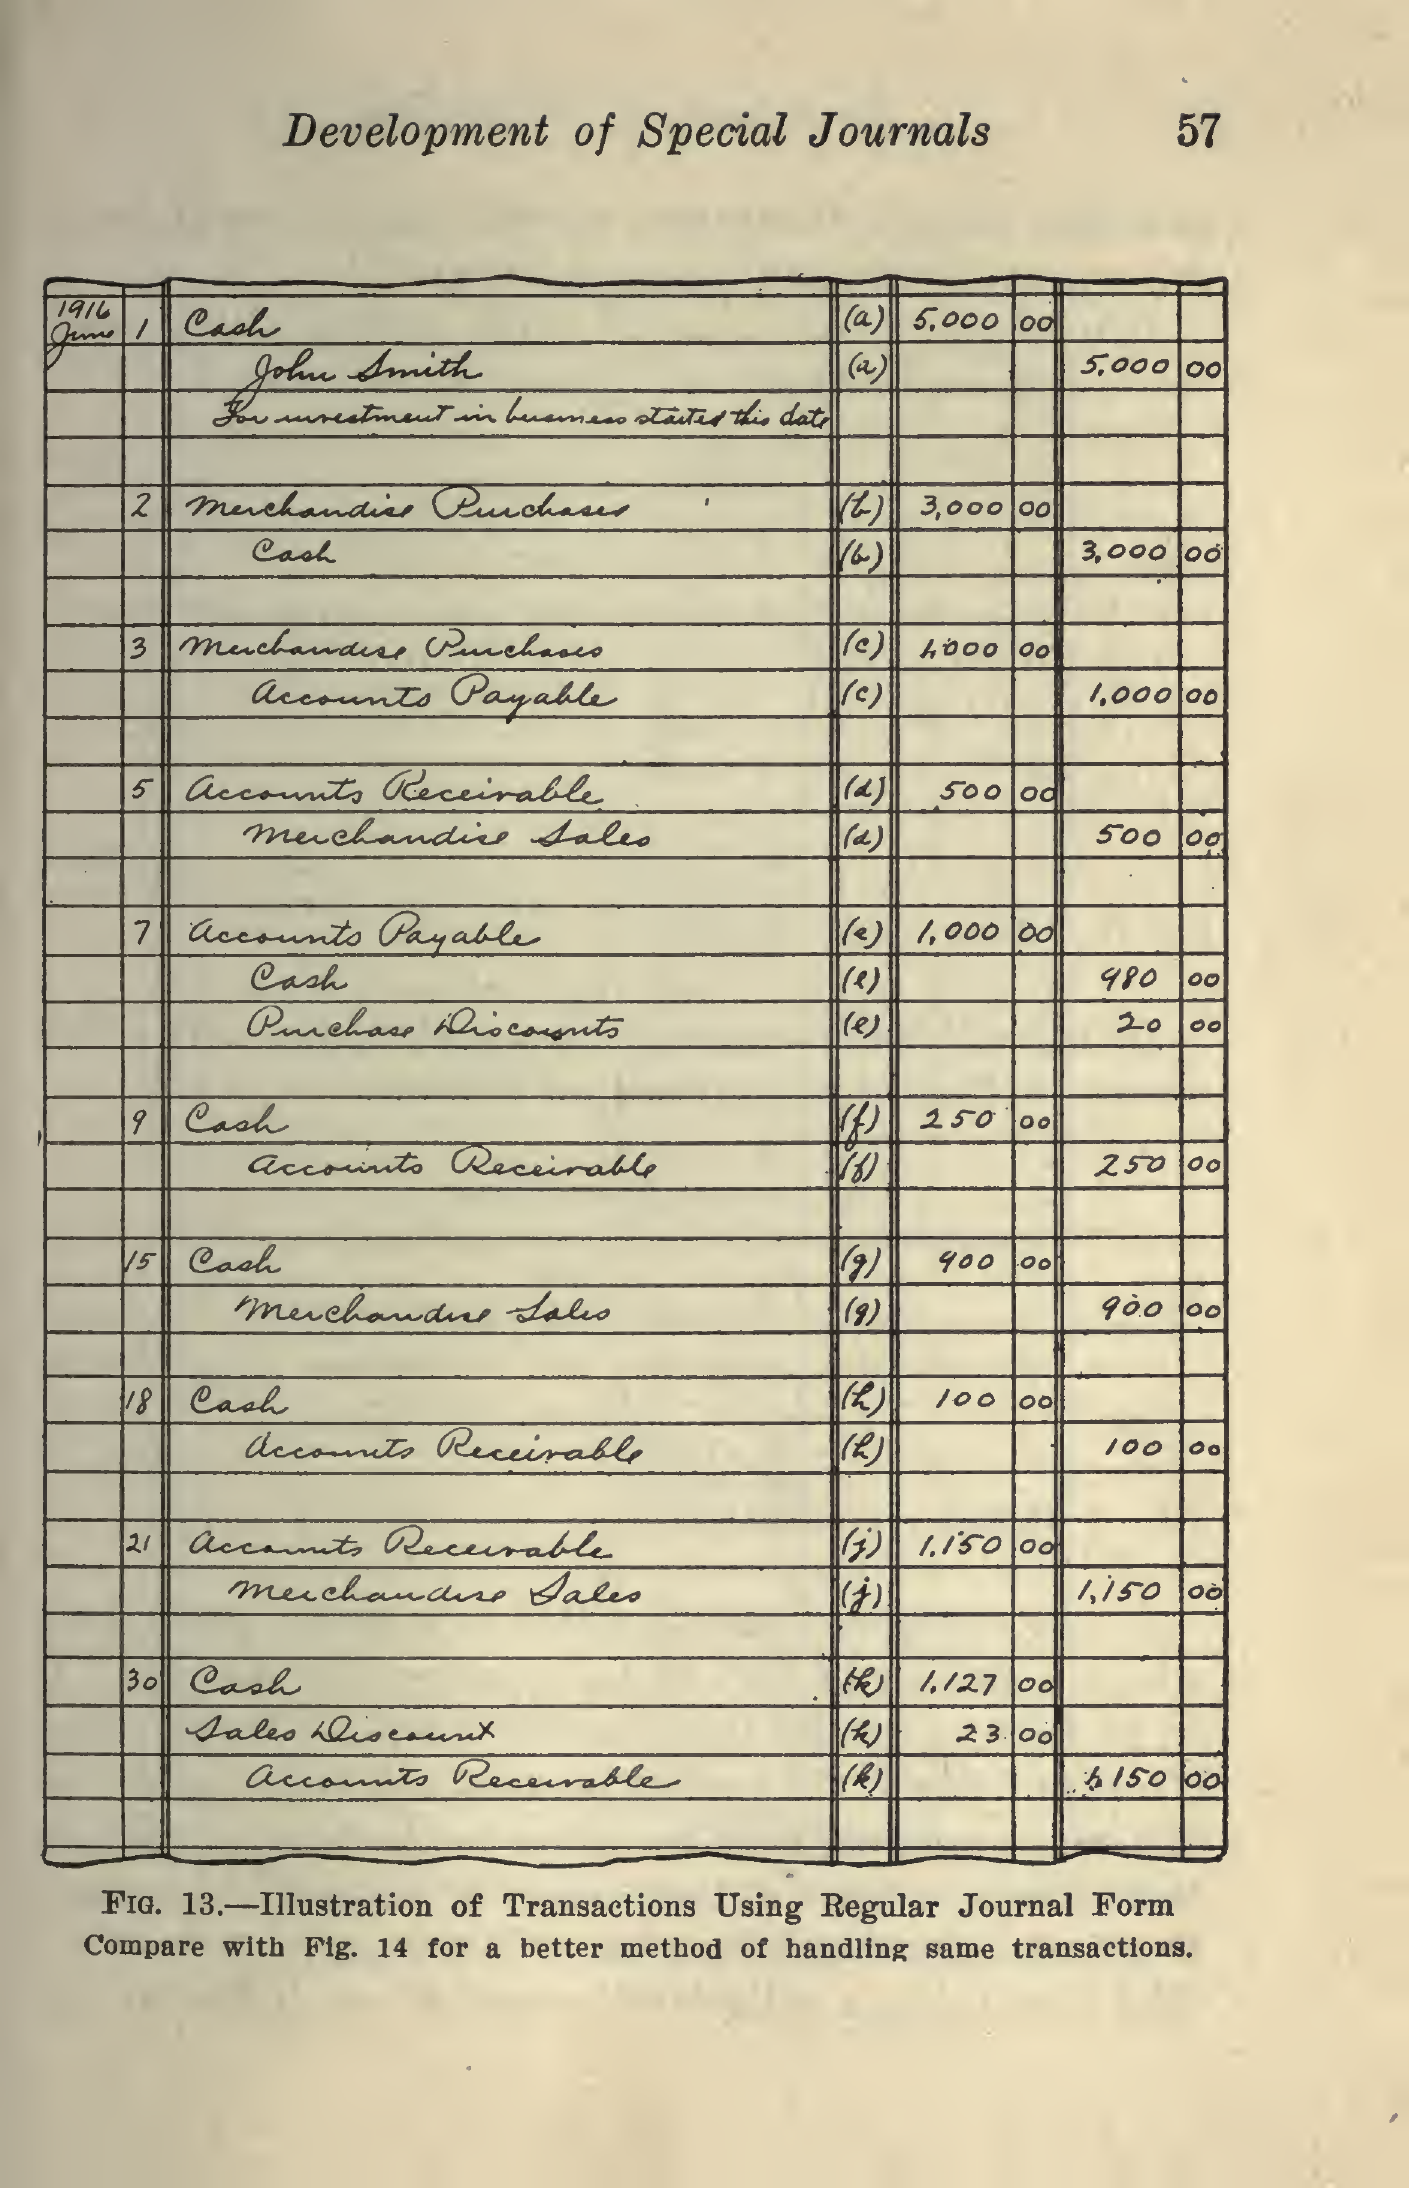 Development of Special Journals 57
1916
June 1 Cash (a) 5,000 00
John Smith (a) 5,000 00
For investment in business started this date
2 Merchandise Purchases (b) 3,000 00
Cash (b) 3,000 00
3 Merchandise Purchases (c) 1,000 00
Accounts Payable (c) 1,000 00
5 Accounts Receivable (d) 500 00
Merchandise Sales (d) 500 00
7 Accounts Payable (e) 1,000 00
Cash (e) 980 00
Purchase Discounts (e) 20 00
9 Cash (f) 250 00
Accounts Receivable (f) 250 00
15 Cash (g) 900 00
Merchandise Sales (g) 900 00
18 Cash (h) 100 00
Accounts Receivable (h) 100 00
21 Accounts Receivable (j) 1,150 00
Merchandise Sales (j) 1,150 00
30 Cash (k) 1,127 00
Sales Discount (k) 23 00
Accounts Receivable (k) 1,150 00
FIG. 13.—Illustration of Transactions Using Regular Journal Form
Compare with Fig. 14 for a better method of handling same transactions.